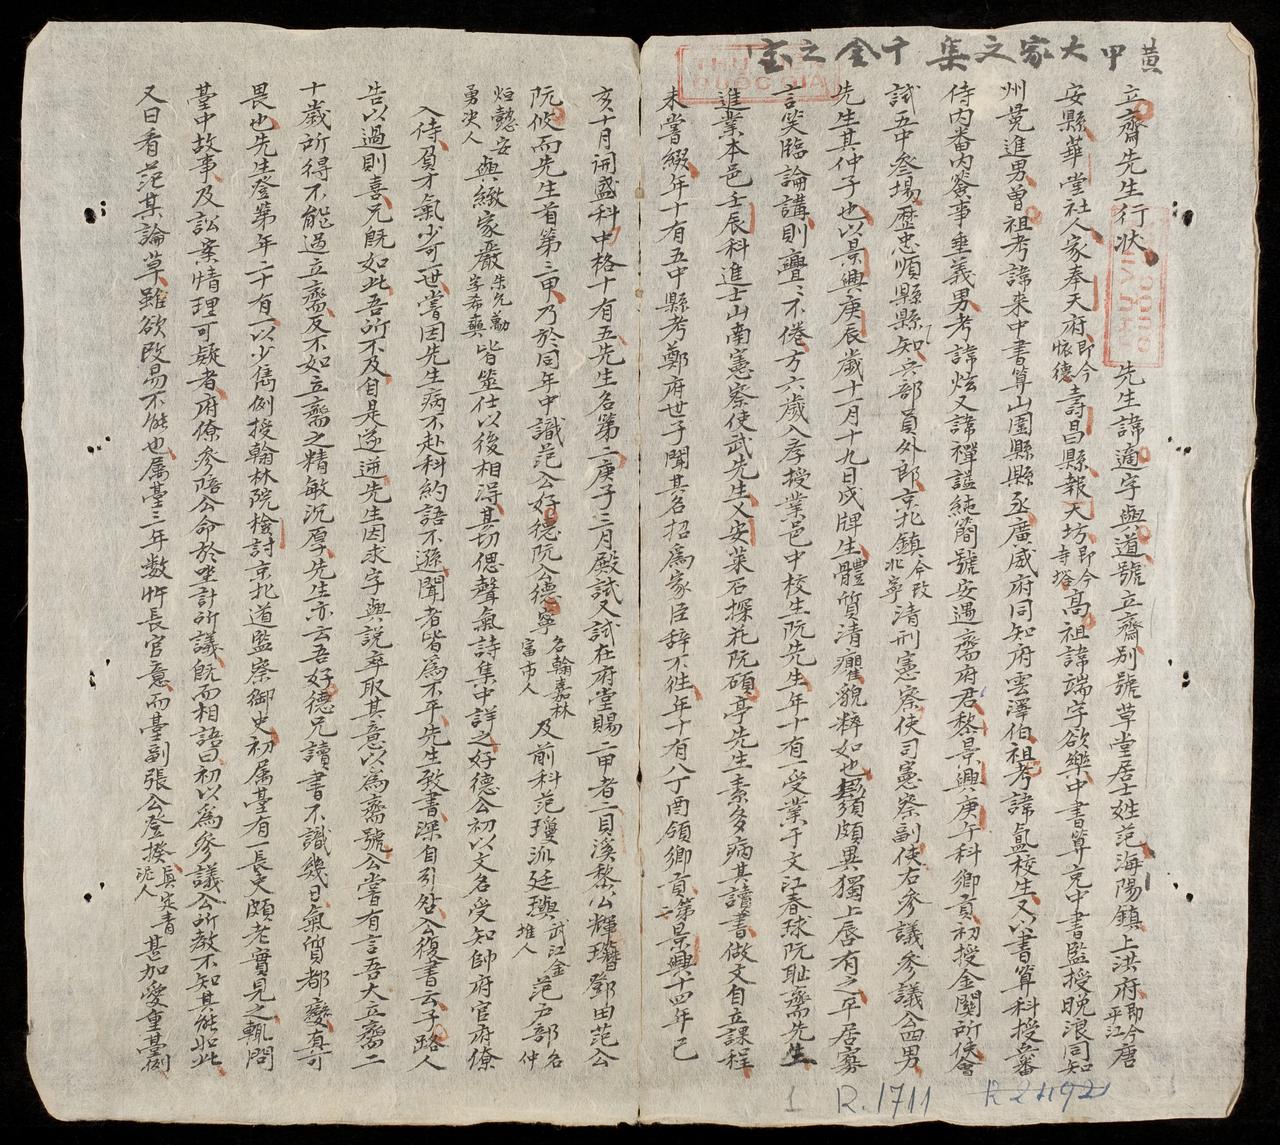 黃甲大家文集千金之宝
立齋先生行状 先生諱適字與道號立齋别號草堂居士姓范海陽鎮上洪府即今平江唐
安縣華堂社人家奉天府即今懷德壽昌縣報天坊即今寺塔高祖諱端字欲樂中書算充中書監授晚浪同知
州覓進男曾祖考諱来中書算山圍縣縣丞廣威府同知府雲澤伯祖考諱氳校生又以書算科授蕃
侍内番内蜜事垂義男考諱炫又諱禪謚純簡號安遇齋府君黎景興庚午科鄉貢初授金關所使會
試五中叁場歷忠順縣縣知兵部員外郎京北鎮今改北寧清刑憲察使司憲察副使右參議參議公四男
先生其仲子也以景興庚辰歲十一月十九日戌牌生體質清癯貌粹如也鬍鬚頗異獨上唇有之平居寡
言笑臨論講則亹〻不倦方六歲入孝授業邑中校生阮先生年十有一受業于文江春球阮耻齋先生
進業本邑壬辰科進士山南憲察使武先生又安葉石探花阮碩亭先生素多病其讀書做文自立課程
未嘗綴年十有五中縣考鄭府世子聞其名招爲家臣辞不徃年十有八丁酉領鄉貢第二景興四十年己
亥十月開盛科中格十有五先生名第二庚子三月殿試又試在府堂賜二甲者二貝溪黎公輝瓚鄧田范公
阮攸而先生首第三甲乃於同年中識范公好德阮公德寧名翰嘉林富市人及前科范瓊派廷璵武江金堆人范户部名仲
烜懿安勇决人與緻家嚴朱允勵字希奭皆筮仕以後相得甚切偲聲氣詩集中詳之好德公初以文名受知帥府官府僚
入侍負才氣少可一世嘗因先生病不赴科約語不遜聞者皆爲不平先生致書深自引咎公復書云子路人
告以過則喜元旣如此吾所不及自是遂逊先生因求字與說卒取其意以爲齋號公嘗有言吾大立齋二
十歲所得不能過立齋反不如立齋之精敏沉厚先生亦云吾好德兄讀書不識幾日氣質都變真可
畏也先生登第年二十有一以少雋例授翰林院檢討京北道監察御史初属臺有一長吏頗老實見之輒問
臺中故事及訟案情理可疑者府僚參陪公命於坐計所議既而相語曰初以爲參議公所教不知其能如此
又曰看范某論草雖欲改易不能也属臺三年数忤長官意而臺副張公登揆真定青泥人甚加愛重臺例
1 R.1711 R 2492